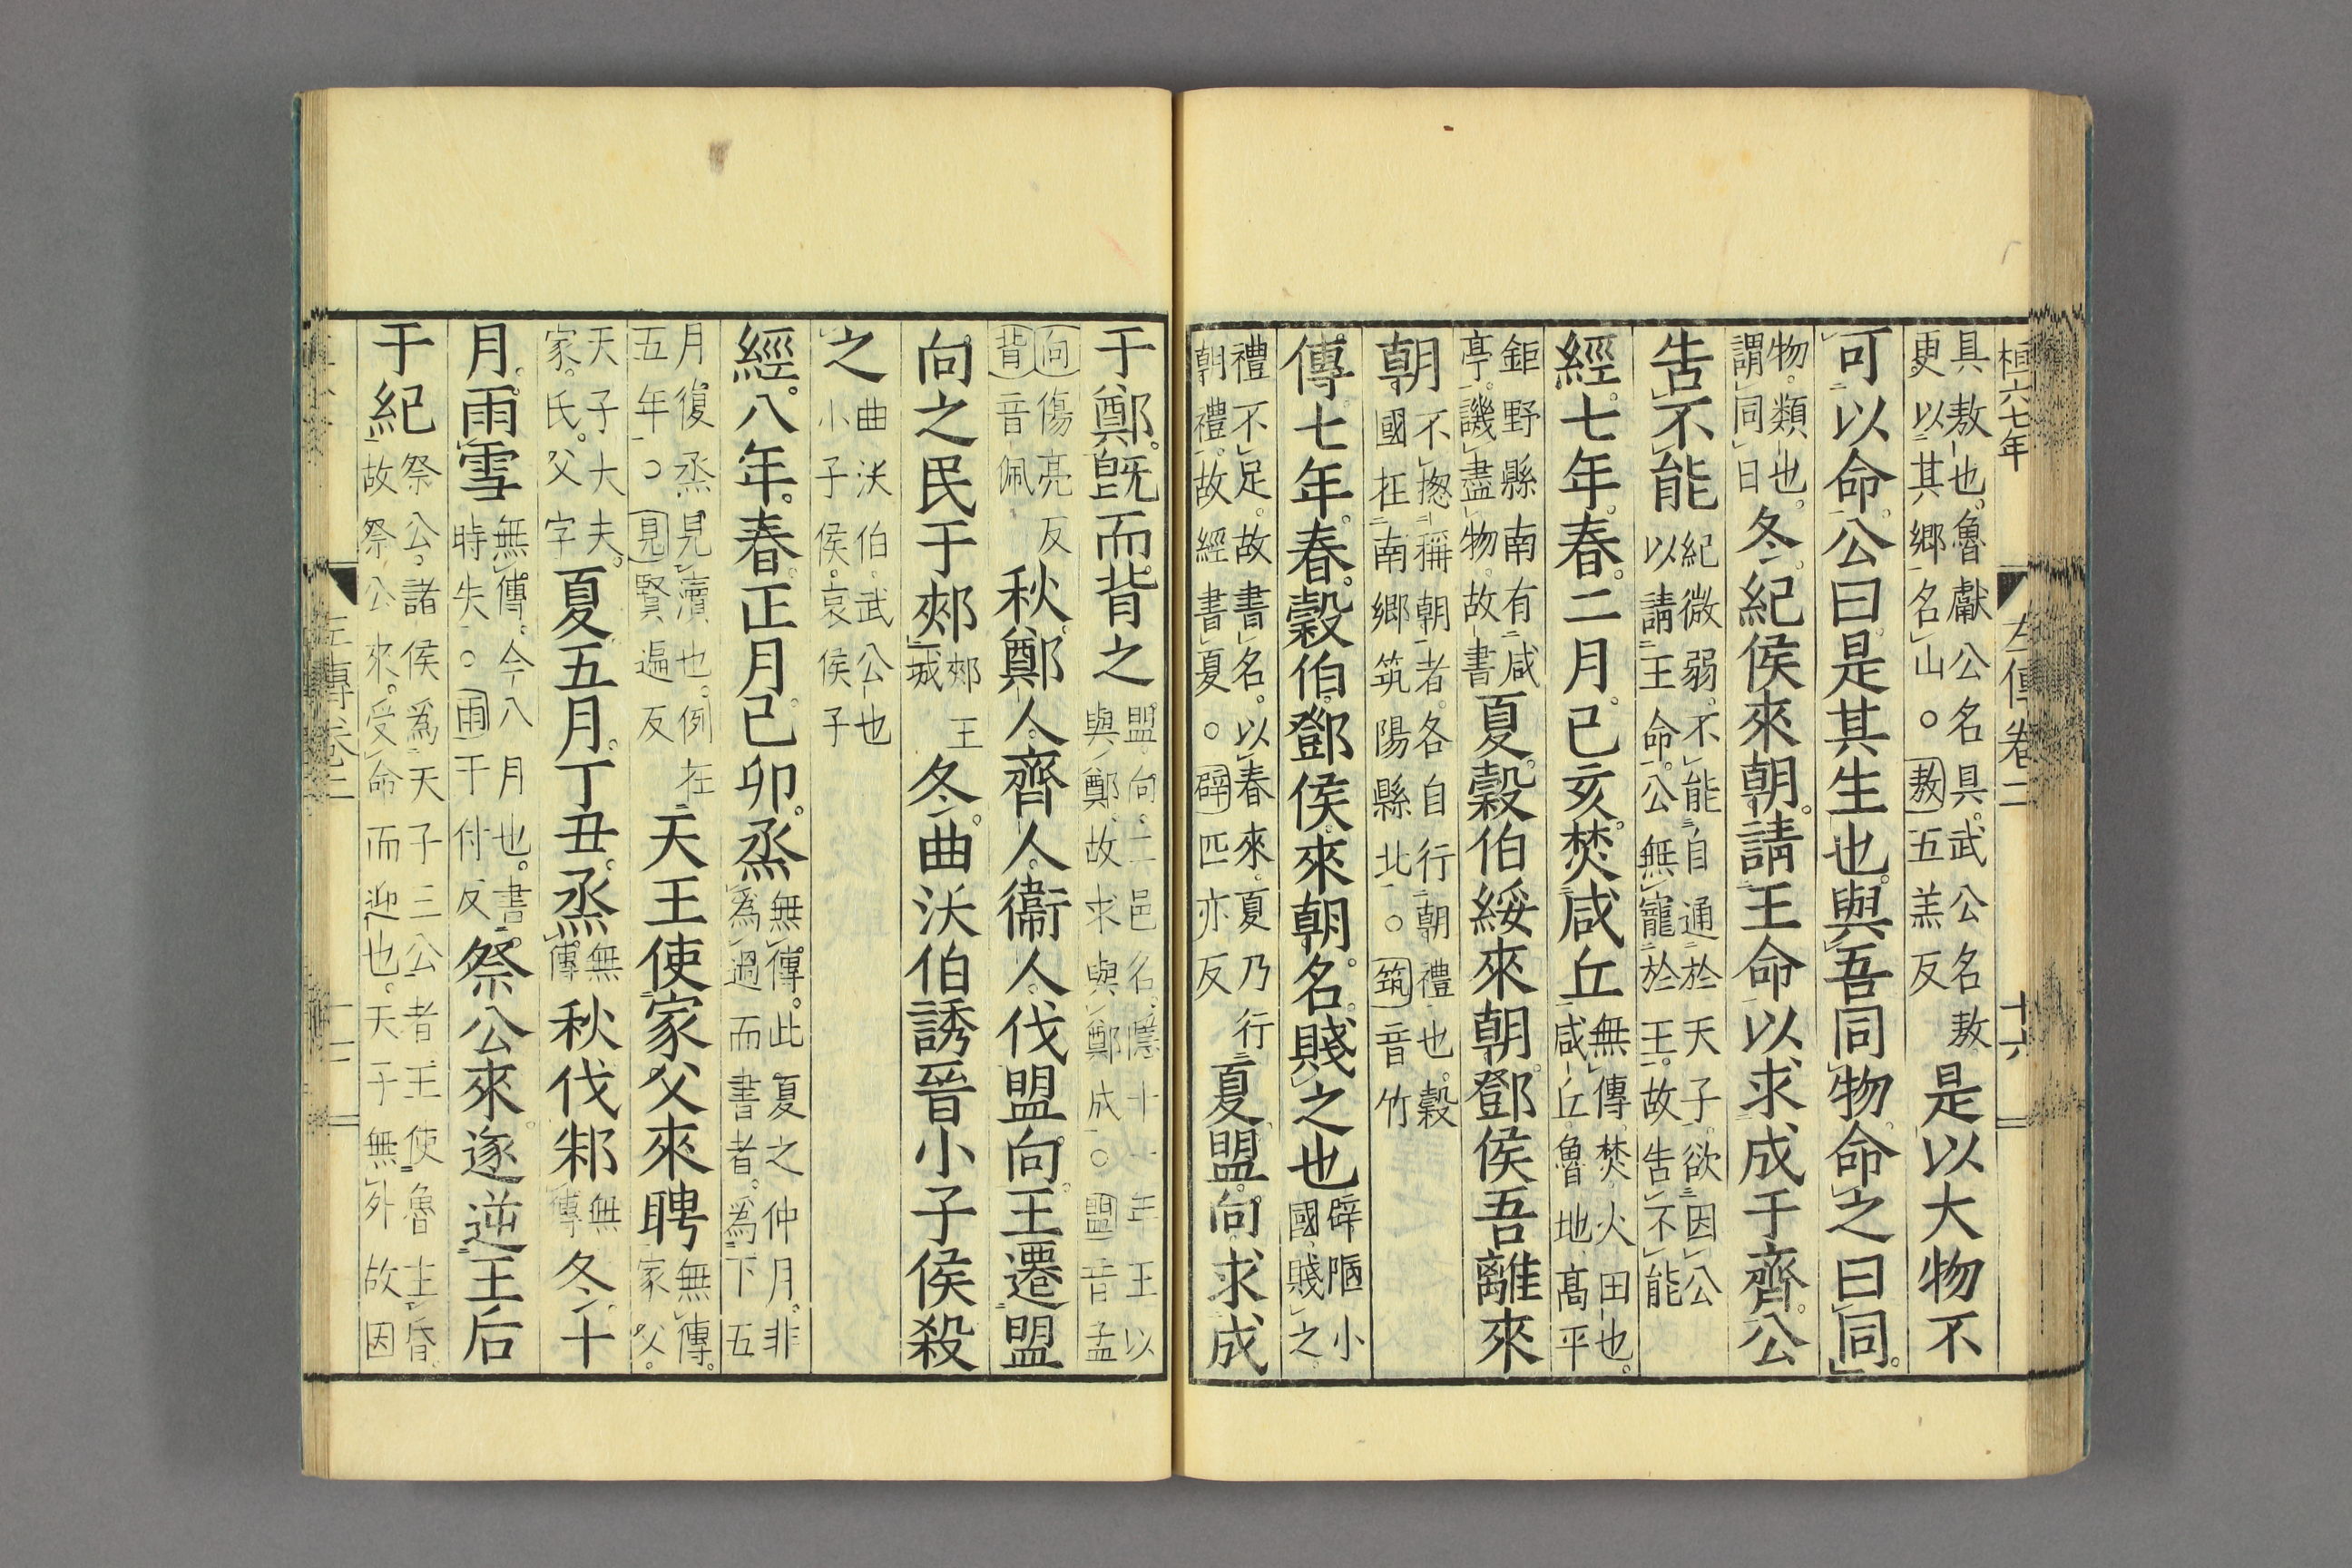 桓六七年　左傳卷二　十六
具敖也魯獻公名具武公名敖更以其鄉名山○敖五羔反是以大物不
可以命公曰是其生也與吾同物命之曰同
物類也謂同日冬紀侯來朝請王命以求成于齊公
告不能紀微弱不能自通於天子欲因公以請王命公無寵於王故告不能
經七年春二月己亥焚咸丘無傳焚火田也咸丘魯地高平
鉅野縣南有咸亭譏盡物故書夏穀伯綏來朝鄧侯吾離來
朝不揔稱朝者各自行朝禮也穀國在南鄉筑陽縣北○筑音竹
傳七年春穀伯鄧侯來朝名賤之也辟陋小國賤之
禮不足故書名以春來夏乃行朝禮故經書夏○辟匹亦反夏盟向求成
于鄭旣而背之盟向二邑名隱十一年王以與鄭故求與鄭成○盟音孟
向傷亮反背音佩秋鄭人齊人衞人伐盟向王遷盟
向之民于郟郟王城冬曲沃伯誘晉小子侯殺
之曲沃伯武公也小子侯哀侯子
經八年春正月己卯烝無傳此夏之仲月非爲過而書者爲下五
月復烝見瀆也例在五年○見賢遍反天王使家父來聘無傳家父
天子大夫家氏父字夏五月丁丑烝無傳秋伐邾無傳冬十
月雨雪無傳今八月也書時失○雨于付反祭公來遂逆王后
于紀祭公諸侯爲天子三公者王使魯主昏故祭公來受命而迎也天子無外故因
左傳卷二